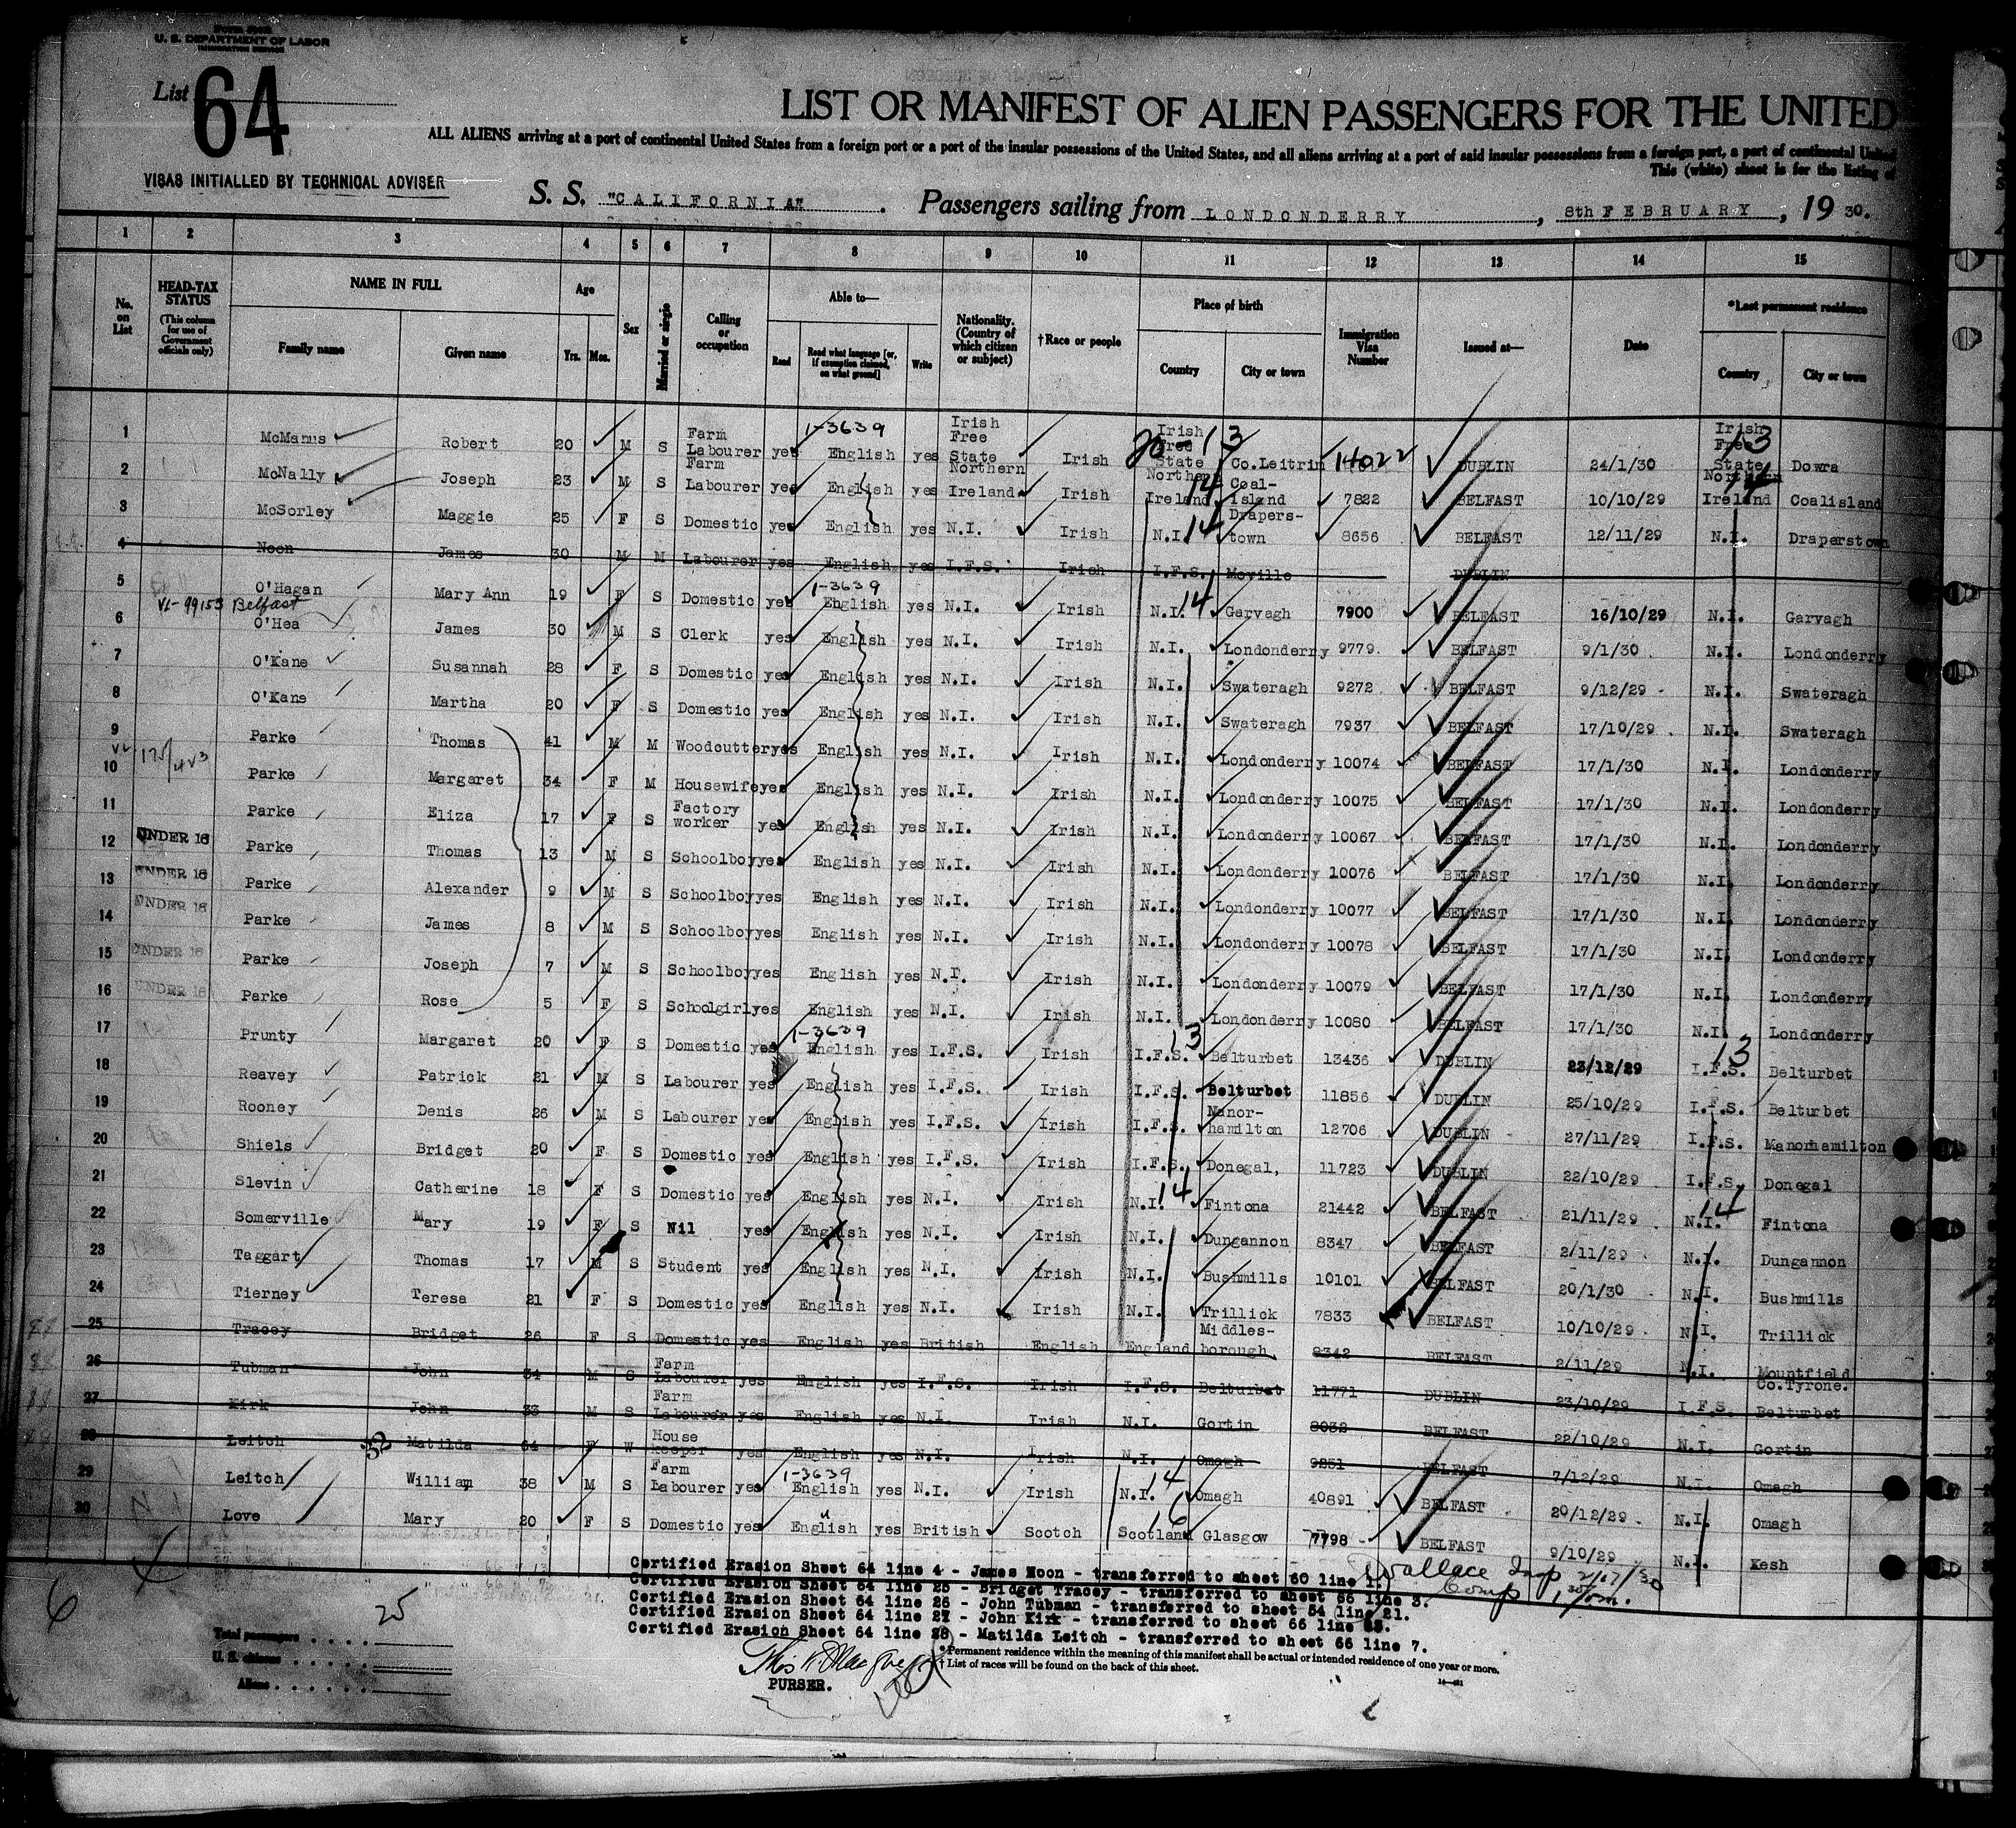 U. S. DEPARTMENT OF LABOR
IMMIGRATION SERVICE
List 64
LIST OR MANIFEST OF ALIEN PASSENGERS FOR THE UNITED
ALL ALIENS arriving at a port of continental United States from a foreign port or a port of the insular possessions of the United States, and all aliens arriving at a port of said insular possessions from a foreign port, a port of continental United
This (white) sheet is for the listing of
VISAS INITIALLED BY TECHNICAL ADVISER
S. S. "CALIFORNIA". Passengers sailing from LONDONDERRY, 8th FEBRUARY, 19 30.
1 2 3 4 5 6 7 8 9 10 11 12 13 14 15
No. on List HEAD-TAX STATUS (This column for use of Government officials only) NAME IN FULL Family name Given name Age Yrs. Mos. Sex Married or single Calling or occupation Able to— Read Read what language [or, if exemption claimed, on what ground] Write Nationality. (Country of which citizen or subject) †Race or people Place of birth Country City or town Immigration Visa Number Issued at— Date *Last permanent residence Country City or town
1 McManus Robert 20 M S Farm Labourer yes 1-3639 English yes Irish Free State Irish 20-13 Irish Free State Co.Leitrim 14022 DUBLIN 24/1/30 Irish Free State 13 Dowra
2 McNally Joseph 23 M S Farm Labourer yes English yes Northern Ireland Irish Northern Ireland 14 Coal-island 7822 BELFAST 10/10/29 Northern Ireland 14 Coalisland
3 McSorley Maggie 25 F S Domestic yes English yes N.I. Irish N.I. 14 Drapers-town 8656 BELFAST 12/11/29 N.I. Draperstown
4 Noon James 30 M M Labourer yes English yes I.F.S. Irish I.F.S. Moville DUBLIN
5 O'Hagan Mary Ann 19 F S Domestic yes 1-3639 English yes N.I. Irish N.I. 14 Garvagh 7900 BELFAST 16/10/29 N.I. Garvagh
VL-99153 Belfast
6 O'Hea James 30 M S Clerk yes English yes N.I. Irish N.I. Londonderry 9779 BELFAST 9/1/30 N.I. Londonderry
7 O'Kane Susannah 28 F S Domestic yes English yes N.I. Irish N.I. Swateragh 9272 BELFAST 9/12/29 N.I. Swateragh
8 O'Kane Martha 20 F S Domestic yes English yes N.I. Irish N.I. Swateragh 7937 BELFAST 17/10/29 N.I. Swateragh
9 Parke Thomas 41 M M Woodcutter yes English yes N.I. Irish N.I. Londonderry 10074 BELFAST 17/1/30 N.I. Londonderry
VL 175/453
10 Parke Margaret 34 F M Housewife yes English yes N.I. Irish N.I. Londonderry 10075 BELFAST 17/1/30 N.I. Londonderry
11 Parke Eliza 17 F S Factory worker yes English yes N.I. Irish N.I. Londonderry 10067 BELFAST 17/1/30 N.I. Londonderry
12 UNDER 16 Parke Thomas 13 M S Schoolboy yes English yes N.I. Irish N.I. Londonderry 10076 BELFAST 17/1/30 N.I. Londonderry
13 UNDER 16 Parke Alexander 9 M S Schoolboy yes English yes N.I. Irish N.I. Londonderry 10077 BELFAST 17/1/30 N.I. Londonderry
14 UNDER 16 Parke James 8 M S Schoolboy yes English yes N.I. Irish N.I. Londonderry 10078 BELFAST 17/1/30 N.I. Londonderry
15 UNDER 16 Parke Joseph 7 M S Schoolboy yes English yes N.I. Irish N.I. Londonderry 10079 BELFAST 17/1/30 N.I. Londonderry
16 UNDER 16 Parke Rose 5 F S Schoolgirl yes English yes N.I. Irish N.I. Londonderry 10080 BELFAST 17/1/30 N.I. Londonderry
17 Prunty Margaret 20 F S Domestic yes 1-3639 English yes I.F.S. Irish I.F.S. 13 Belturbet 13436 DUBLIN 23/12/29 I.F.S. 13 Belturbet
18 Reavey Patrick 21 M S Labourer yes English yes I.F.S. Irish I.F.S. Belturbet 11856 DUBLIN 25/10/29 I.F.S. Belturbet
19 Rooney Denis 26 M S Labourer yes English yes I.F.S. Irish I.F.S. Manor-hamilton 12706 DUBLIN 27/11/29 I.F.S. Manorhamilton
20 Shiels Bridget 20 F S Domestic yes English yes I.F.S. Irish I.F.S. Donegal, 11723 DUBLIN 22/10/29 I.F.S. Donegal
21 Slevin Catherine 18 F S Domestic yes English yes N.I. Irish N.I. 14 Fintona 21442 BELFAST 21/11/29 N.I. 14 Fintona
22 Somerville Mary 19 F S Nil yes English yes N.I. Irish N.I. Dungannon 8347 BELFAST 2/11/29 N.I. Dungannon
23 Taggart Thomas 17 M S Student yes English yes N.I. Irish N.I. Bushmills 10101 BELFAST 20/1/30 N.I. Bushmills
24 Tierney Teresa 21 F S Domestic yes English yes N.I. Irish N.I. Trillick 7833 BELFAST 10/10/29 N.I. Trillick
25 Tracey Bridget 26 F S Domestic yes English yes British English England Middles-borough 8342 BELFAST 2/11/29 N.I. Mountfield Co.Tyrone.
26 Tubman John 34 M S Farm Labourer yes English yes I.F.S. Irish I.F.S. Belturbet 11771 DUBLIN 23/10/29 I.F.S. Belturbet
27 Kirk John 33 M S Farm Labourer yes English yes N.I. Irish N.I. Gortin 8032 BELFAST 22/10/29 N.I. Gortin
28 Leitch Matilda 64 F W House keeper yes English yes N.I. Irish N.I. Omagh 9251 BELFAST 7/12/29 N.I. Omagh
29 Leitch William 38 M S Farm Labourer yes 1-3639 English yes N.I. Irish N.I. 14 Omagh 40891 BELFAST 20/12/29 N.I. Omagh
30 Love Mary 20 F S Domestic yes English yes British Scotch Scotland 16 Glasgow 7798 BELFAST 9/10/29 N.I. Kesh
Certified Erasion Sheet 64 line 4 - James Noon - transferred to sheet 60 line 1.
Certified Erasion Sheet 64 line 25 - Bridget Tracey - transferred to sheet 66 line 3.
Certified Erasion Sheet 64 line 26 - John Tubman - transferred to sheet 54 line 21.
Certified Erasion Sheet 64 line 27 - John Kirk - transferred to sheet 66 line
Certified Erasion Sheet 64 line 28 - Matilda Leitch - transferred to sheet 66 line 7.
Wallace Insp
Comp
25
Total passengers
U. S. citizens
Aliens
PURSER.
*Permanent residence within the meaning of this manifest shall be actual or intended residence of one year or more.
†List of races will be found on the back of this sheet.